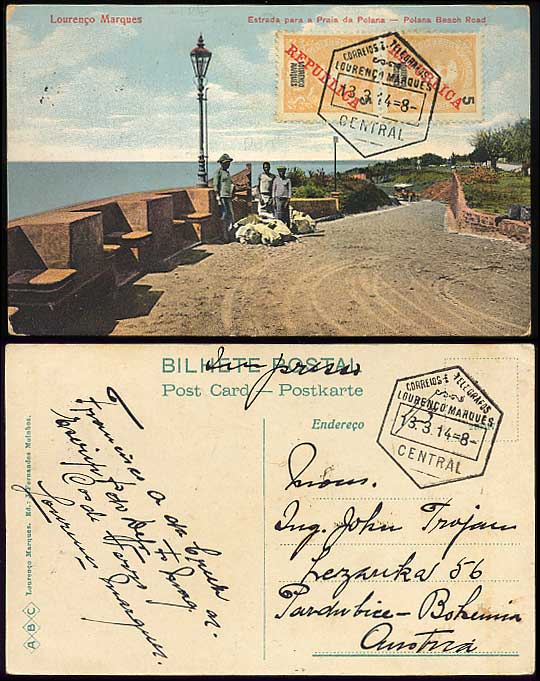 Lourenço Marques
Estrada para a Praia da Polana — Polana Beach Road
REPUBLICA
REPUBLICA
LOURENÇO MARQUES
5
5
CORREIOS E TELEGRAFOS
LOURENÇO MARQUES
13.3.14=8-
CENTRAL
BILHETE POSTAL
Post Card — Postkarte
Endereço
CORREIOS E TELEGRAFOS
LOURENÇO MARQUES
13.3.14=8-
CENTRAL
Ing. John Trojan
Lezarika 56
Pardubice – Bohemia
Austria
Francisco A. da
Lourenço
Marques.
A B C Lourenço Marques. Ed.: J. Fernandes Moinhos.